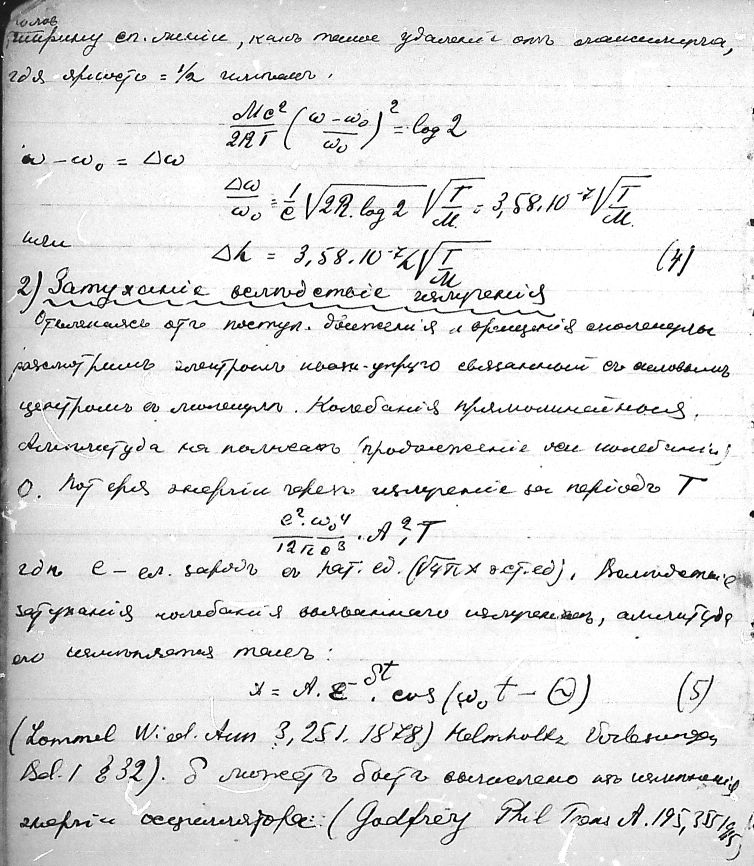 полов
ширину сп. линіи, какъ такое удаленіе отъ максимума,
гдѣ яркость = 1/2 макс.
Mc²/2RT ((ω-ω₀)/ω₀)² = log 2
ω - ω₀ = Δω
Δω/ω₀ = 1/c √(2R.log 2) √(T/M) = 3,58.10⁻⁷ √(T/M)
или
Δλ = 3,58.10⁻⁷ λ √(T/M) (4)
2) Затуханіе вслѣдствіе излученія
Отвлекаясь отъ поступ. движенія и вращенія молекулы
разсмотримъ электронъ квази-упруго связанный съ силовымъ
центромъ въ молекулѣ. Колебанія прямолинейныя.
Амплитуда на полюсахъ (продолженіе оси колебанія)
0. Потеря энергіи черезъ излученіе за періодъ T
e².ω₀⁴/12πc³ . A²,T
гдѣ e - эл. зарядъ въ рат. ед. (√4π × эст. ед). Вслѣдствіе
затуханія колебанія вызваннаго излученіемъ, амплитуда
его измѣняется такъ:
x = A.e^(-δt). cos(ω₀t - Θ) (5)
(Lommel Wied. Ann 3, 251. 1878) Helmholtz Vorlesungen
Bd. 1 § 32). δ можетъ быть вычислено изъ измѣненія
энергіи осциллятора: (Godfrey Phil Trans A. 195,